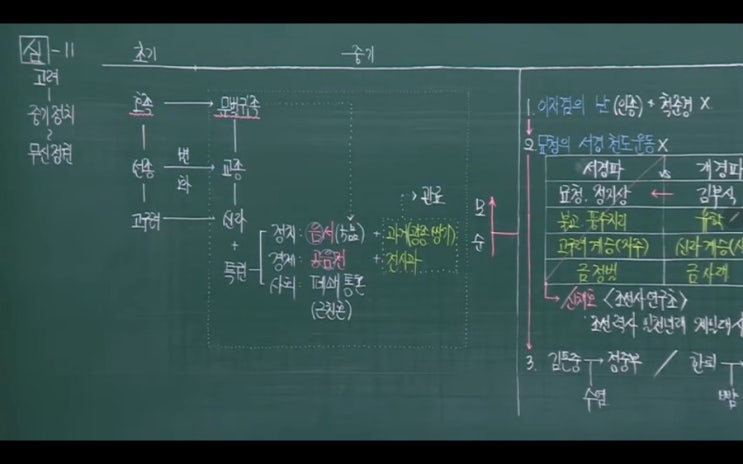 심-11
고려
중기 정치
~
무신정권
초기
중기
호족 → 문벌귀족
선종 변화 → 교종
고구려 → 신라
+
특권
정치 : 음서(5品) + 과거(광종·쌍기)
경제 : 공음전 + 전시과
사회 : 폐쇄 통혼
(근친혼)
→ 관료
모순
1. 이자겸의 난 (인종) + 척준경 X
2. 묘청의 서경 천도운동 X
서경파 vs 개경파
묘청. 정지상 ← 김부식
불교 풍수지리 유학
고구려 계승(자주) 신라 계승(사
금 정벌 금 사대
신채호 <조선사 연구초>
조선 역사 일천년래 제일대사
3. 김돈중 → 정중부 / 한뢰 →
수염
뺨